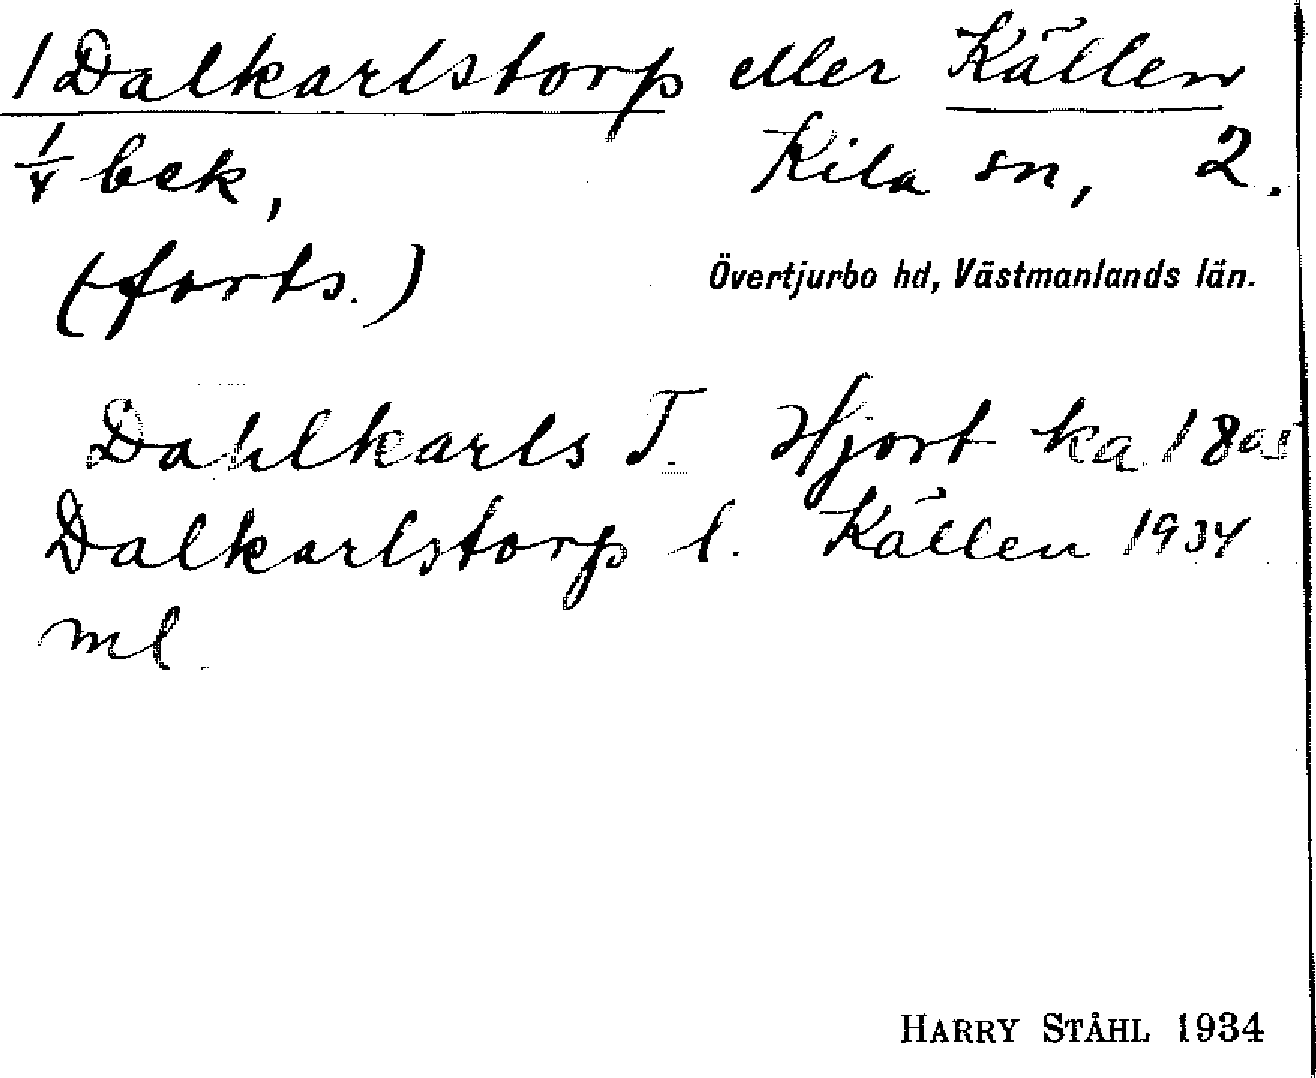 1 Dalkarlstorp eller Källen
1/4 bek, Kila sn, 2.
(forts.) Övertjurbo hd, Västmanlands län.
Dahlkarls T. Hjort ka 1801
Dalkarlstorp l. Källen 1934
ml.
HARRY STÅHL 1934